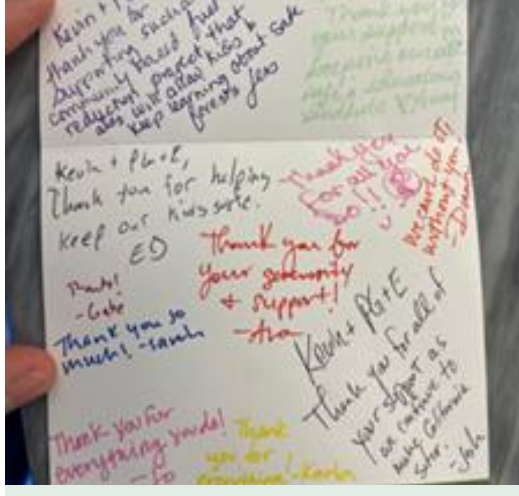 Kevin + PG+E,
thank you for
supporting such a
community based fuel
reduction project that
also will allow kids to
keep learning about safe
forests
Thank you
your support
Kevin + PG+E,
Thank you for helping
keep our kids safe.
ED
Thank you
for all you
do!!
We can't do it
without you
Thank you for
your generosity
+ support!
Thanks!
-Gabe
Thank you so
much! -Sarah
Kevin + PG+E
Thank you for all of
your support as
we continue to
make California
safer.
Thank you for
everything you do!
-Jo
Thank
you for
everything! -Karla